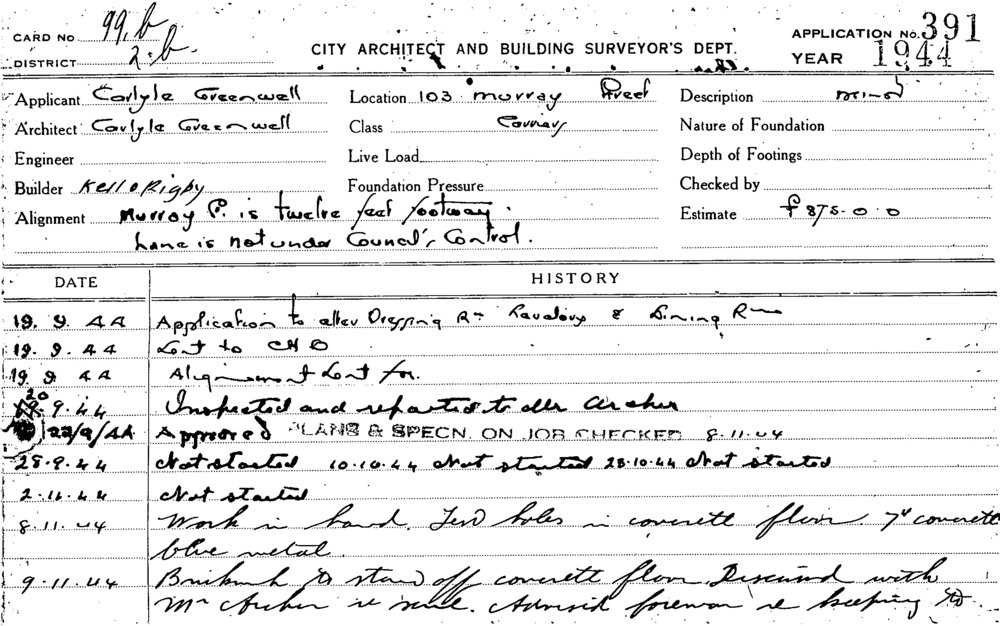 CARD NO 99.b
DISTRICT 2.b.
CITY ARCHITECT AND BUILDING SURVEYOR'S DEPT.
APPLICATION No. 391
YEAR 1944
Applicant Carlyle Greenwell
Location 103 Murray Street
Description minor
Architect Carlyle Greenwell
Class
Nature of Foundation
Engineer
Live Load
Depth of Footings
Builder Kell & Rigby
Foundation Pressure
Checked by
Alignment Murray St. is twelve feet footway.
Estimate £875-0-0
Lane is not under Council's Control.
DATE
HISTORY
19. 9. 44 Application to alter Dressing Rm Lavatory & Dining Rm
19. 9. 44 Sent to CHO
19. 9. 44 Alignment Sent for.
20 9. 44 Inspected and reported to Mr Archer
22/9/44 Approved PLANS & SPECN. ON JOB CHECKED 8.11.44
28.9.44 Not started 10.10.44 Not started 23.10.44 Not started
2.11.44 Not started
8.11.44 Work in hand. Test holes in concrete floor. 7" concrete
blue metal.
9.11.44 Brickwork to stand off concrete floor. Discussed with
Mr Archer re same. Advised foreman re keeping to